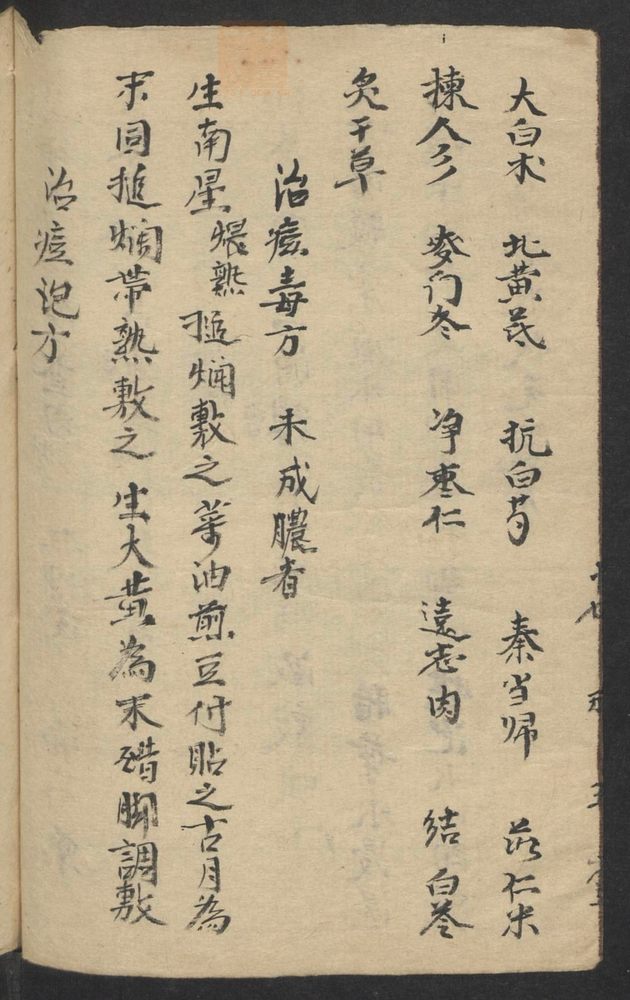 大白术 北黄芪 抗白芍 秦当歸 苡仁米
揀人参 麥门冬 净枣仁 遠志肉 結白苓
炙干草
治痘毒方 未成膿者
生南星 煨熟 搥爛敷之 菜油煎豆付貼之 古月為
末同搥爛帶熱敷之 生大黄為末醋脚調敷
治痘泡方